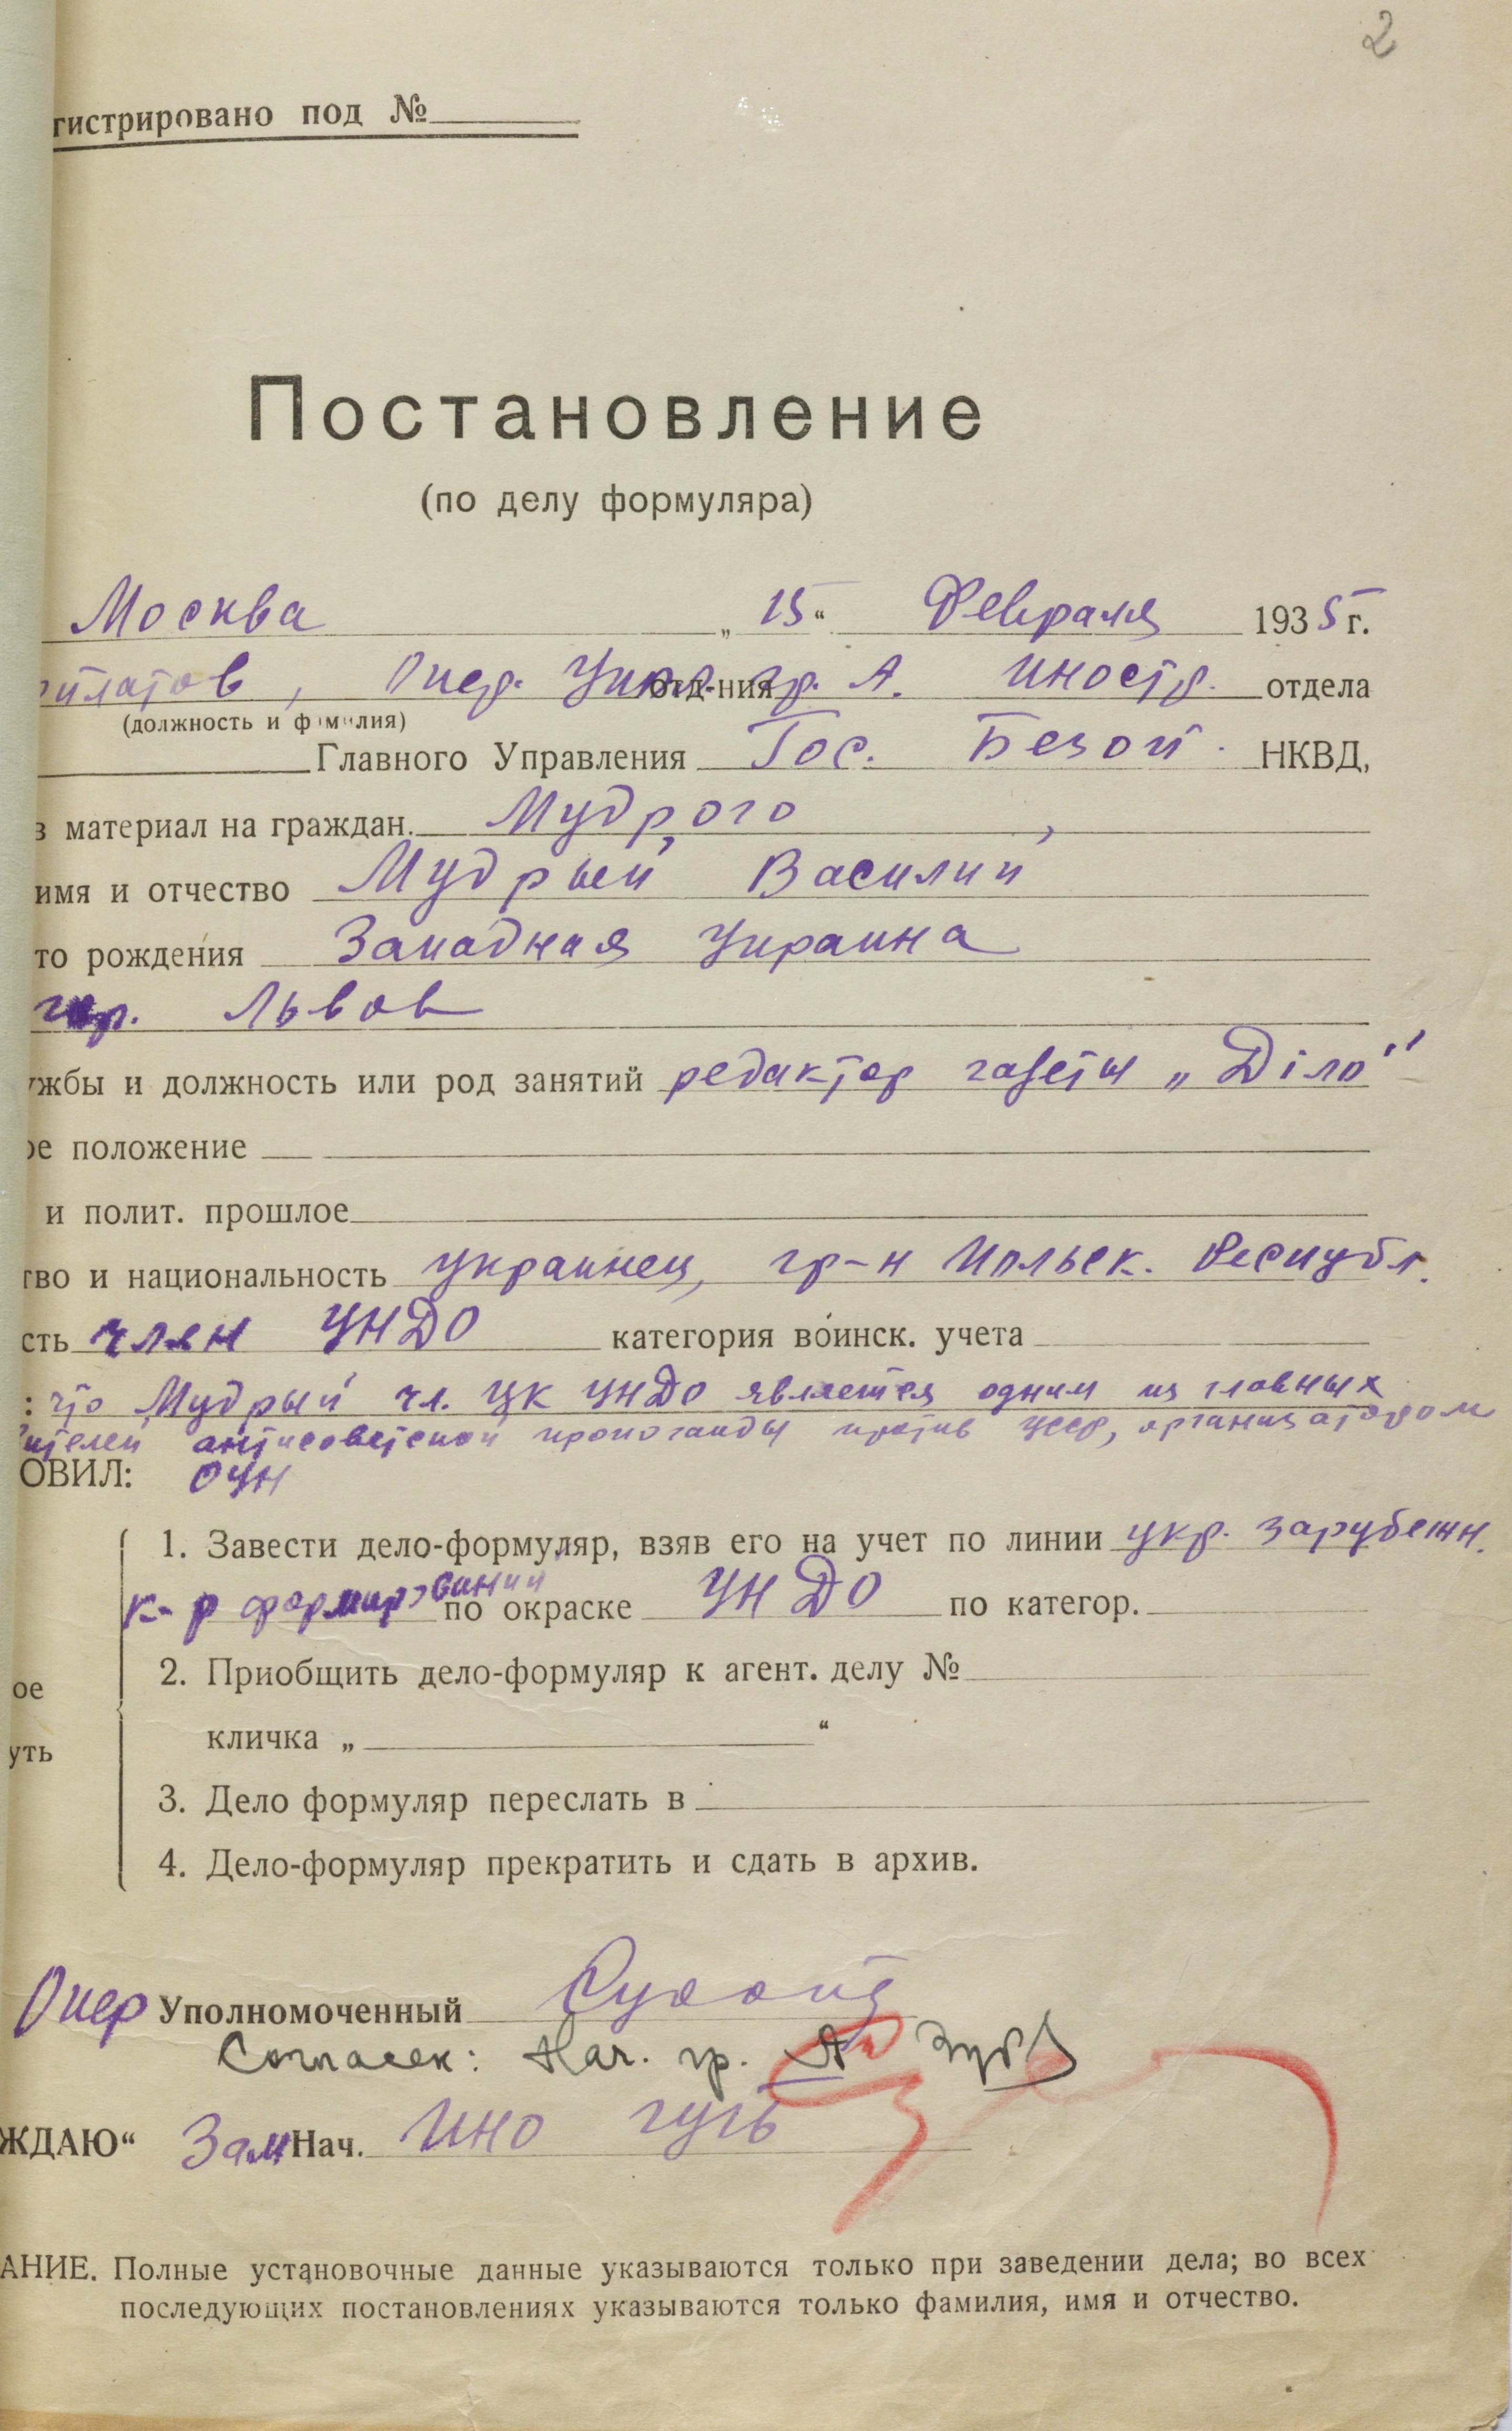 2
гистрировано под №
Постановление
(по делу формуляра)
Москва „ 15 “ Февраля 1935 г.
Опер. Упол. отд-ния гр. А. Иностр. отдела
(должность и фамилия)
Главного Управления Гос. Безоп. НКВД,
в материал на граждан. Мудрого,
имя и отчество Мудрый Василий
то рождения Западная Украина
гор. Львов
ужбы и должность или род занятий редактор газеты „Діло"
ое положение
и полит. прошлое
тво и национальность украинец, гр-н Польск. Республ.
сть член УНДО категория воинск. учета
: что Мудрый чл. ЦК УНДО является одним из главных
ителей антисоветской пропоганды против УССР, организатором
ОВИЛ: ОУН
1. Завести дело-формуляр, взяв его на учет по линии укр. зарубежн.
к-р формирований по окраске УНДО по категор.
2. Приобщить дело-формуляр к агент. делу №
ое
кличка „ “
уть
3. Дело формуляр переслать в
4. Дело-формуляр прекратить и сдать в архив.
Опер Уполномоченный
Согласен: Нач. гр. А
ЖДАЮ“ Зам Нач. ИНО
АНИЕ. Полные установочные данные указываются только при заведении дела; во всех
последующих постановлениях указываются только фамилия, имя и отчество.